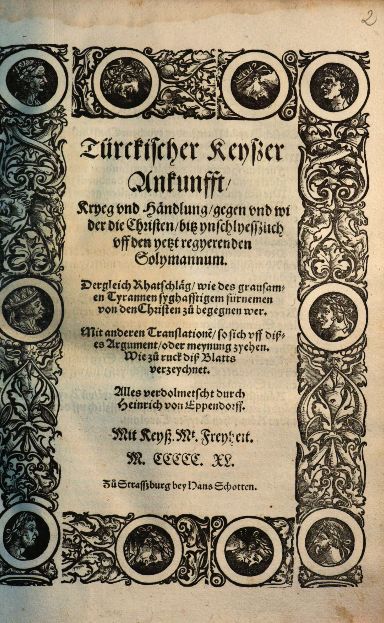 2
Türckischer Keyßer
Ankunfft/
Kryeg vnd Händlung/gegen vnd wi
der die Christen/bitz ynschlyesszlich
vff den yetzt regyerenden
Solymannum.
Dergleich Rhatschläg/wie des grausam-
en Tyrannen syghafftigem fürnemen
von den Christen zů begegnen wer.
Mit anderen Translationẽ/so sich vff diß-
es Argument/oder meynung zyehen.
Wie zů ruck diß Blatts
verzeychnet.
Alles verdolmetscht durch
Heinrich von Eppendorff.
Mit Keyß. Mt. Freyheit.
M. CCCCC. XL.
Zů Strassburg bey Hans Schotten.